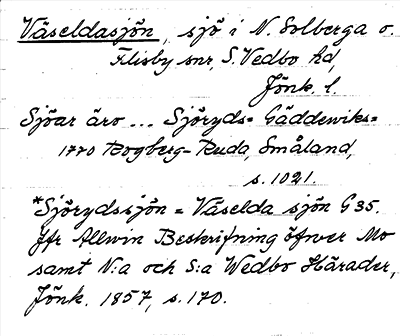 Väseldasjön, sjö i N. Solberga o.
Flisby snr, S. Vedbo hd,
Jönk. l.
Sjöar äro ... Sjöryds= Gäddewiks=
1770 Rogberg-Ruda, Småland,
s. 1021.
*Sjörydssjön = Väselda sjön G 35.
Jfr Allwin Beskrifning öfwer Mo
samt N:a och S:a Wedbo Härader,
Jönk. 1857, s. 170.